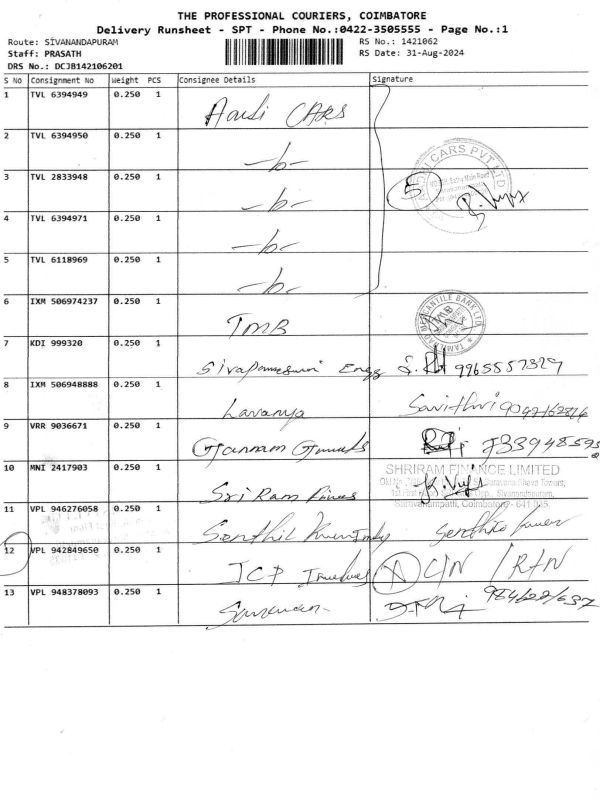 THE PROFESSIONAL COURIERS, COIMBATORE
Delivery Runsheet - SPT - Phone No.:0422-3505555 - Page No.:1
Route: SIVANANDAPURAM RS No.: 1421062
Staff: PRASATH RS Date: 31-Aug-2024
DRS No.: DCJB142106201
S No Consignment No Weight PCS Consignee Details Signature
1 TVL 6394949 0.250 1 CARS
2 TVL 6394950 0.250 1
CARS PVT LTD
3 TVL 2833948 0.250 1 5
4 TVL 6394971 0.250 1
5 TVL 6118969 0.250 1
6 IXM 506974237 0.250 1 TMB
MERCANTILE BANK LTD
7 KDI 999320 0.250 1 9965557329
8 IXM 506948888 0.250 1 Lavanya Savithri
9 VRR 9036671 0.250 1
10 MNI 2417903 0.250 1 Sri Ram
SHRIRAM FINANCE LIMITED
Saravana Towers,
Sivanandapuram,
Saravanampatti, Coimbatore - 641 035.
11 VPL 946276058 0.250 1 Senthil
12 VPL 942849650 0.250 1 JCP C/N / R/N
13 VPL 948378093 0.250 1 Saravanan